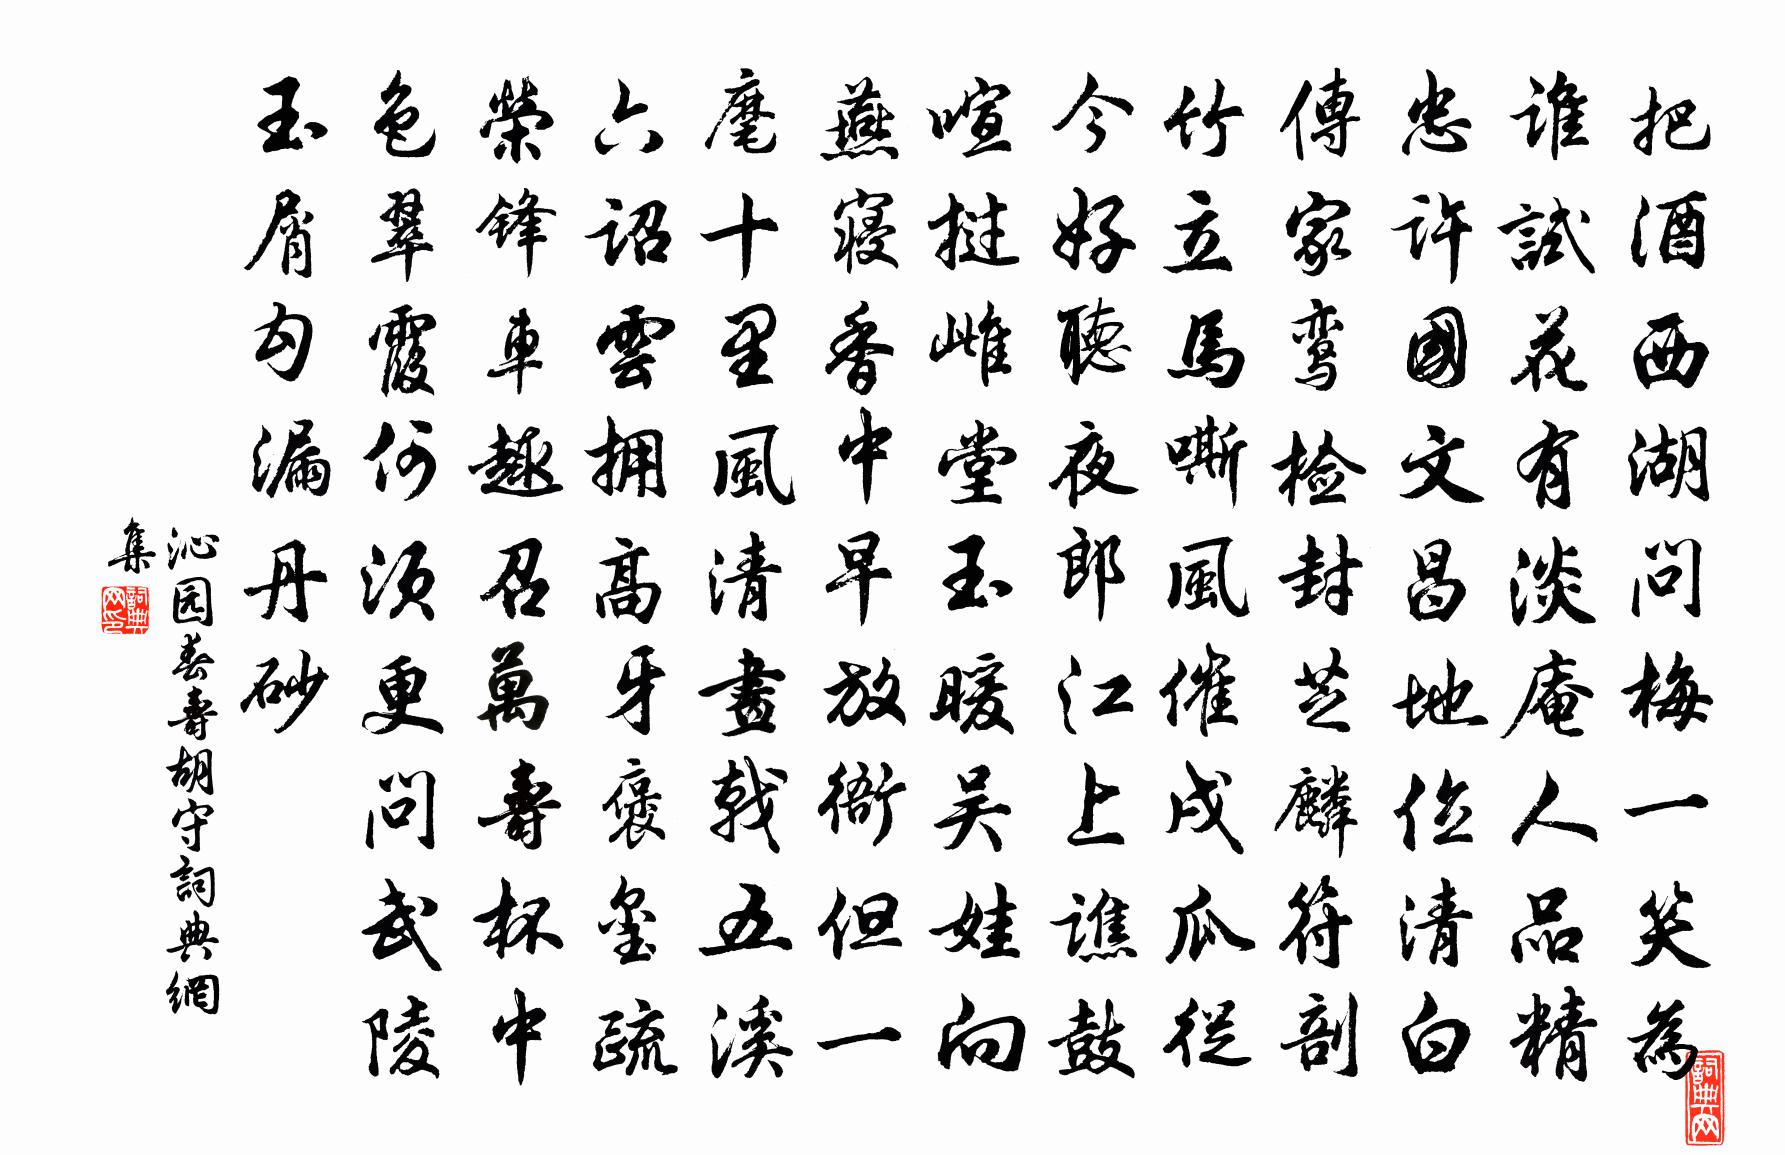 把酒西湖問梅一笑為
誰試花有淡庵人品精
忠許國文昌地位清白
傳家鸾检封芝麟符剖
竹立馬嘶風催戍瓜從
今好聽夜郎江上譙鼓
喧挞雌堂玉暖吴娃向
燕寝香中早放衙但一
麾十里風清畫戟五溪
六詔雲拥高牙褒璽疏
榮鋒車趣召萬壽杯中
色翠霞何須更問武陵
玉屑勾漏丹砂
沁园春壽胡守詞典網
集
詞典网印
詞典网